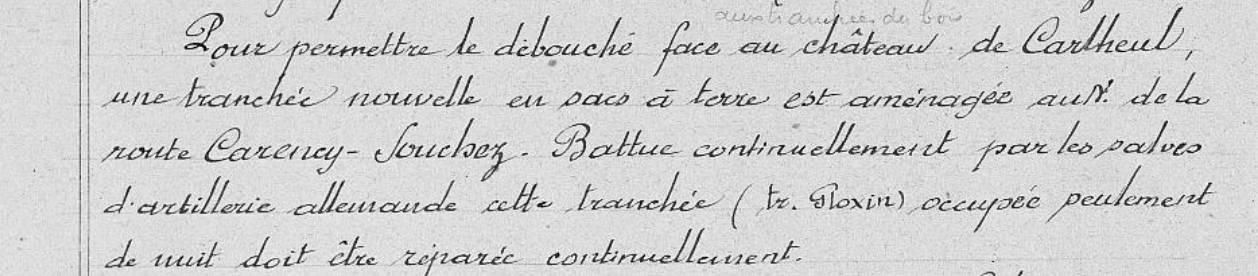 aux tranchées du bois
Pour permettre le débouché face au château de Carlheul,
une tranchée nouvelle en sacs à terre est aménagée au N. de la
route Carency - Souchez. Battue continuellement par les salves
d'artillerie allemande cette tranchée (tr. Floxin) occupée seulement
de nuit doit être réparée continuellement.